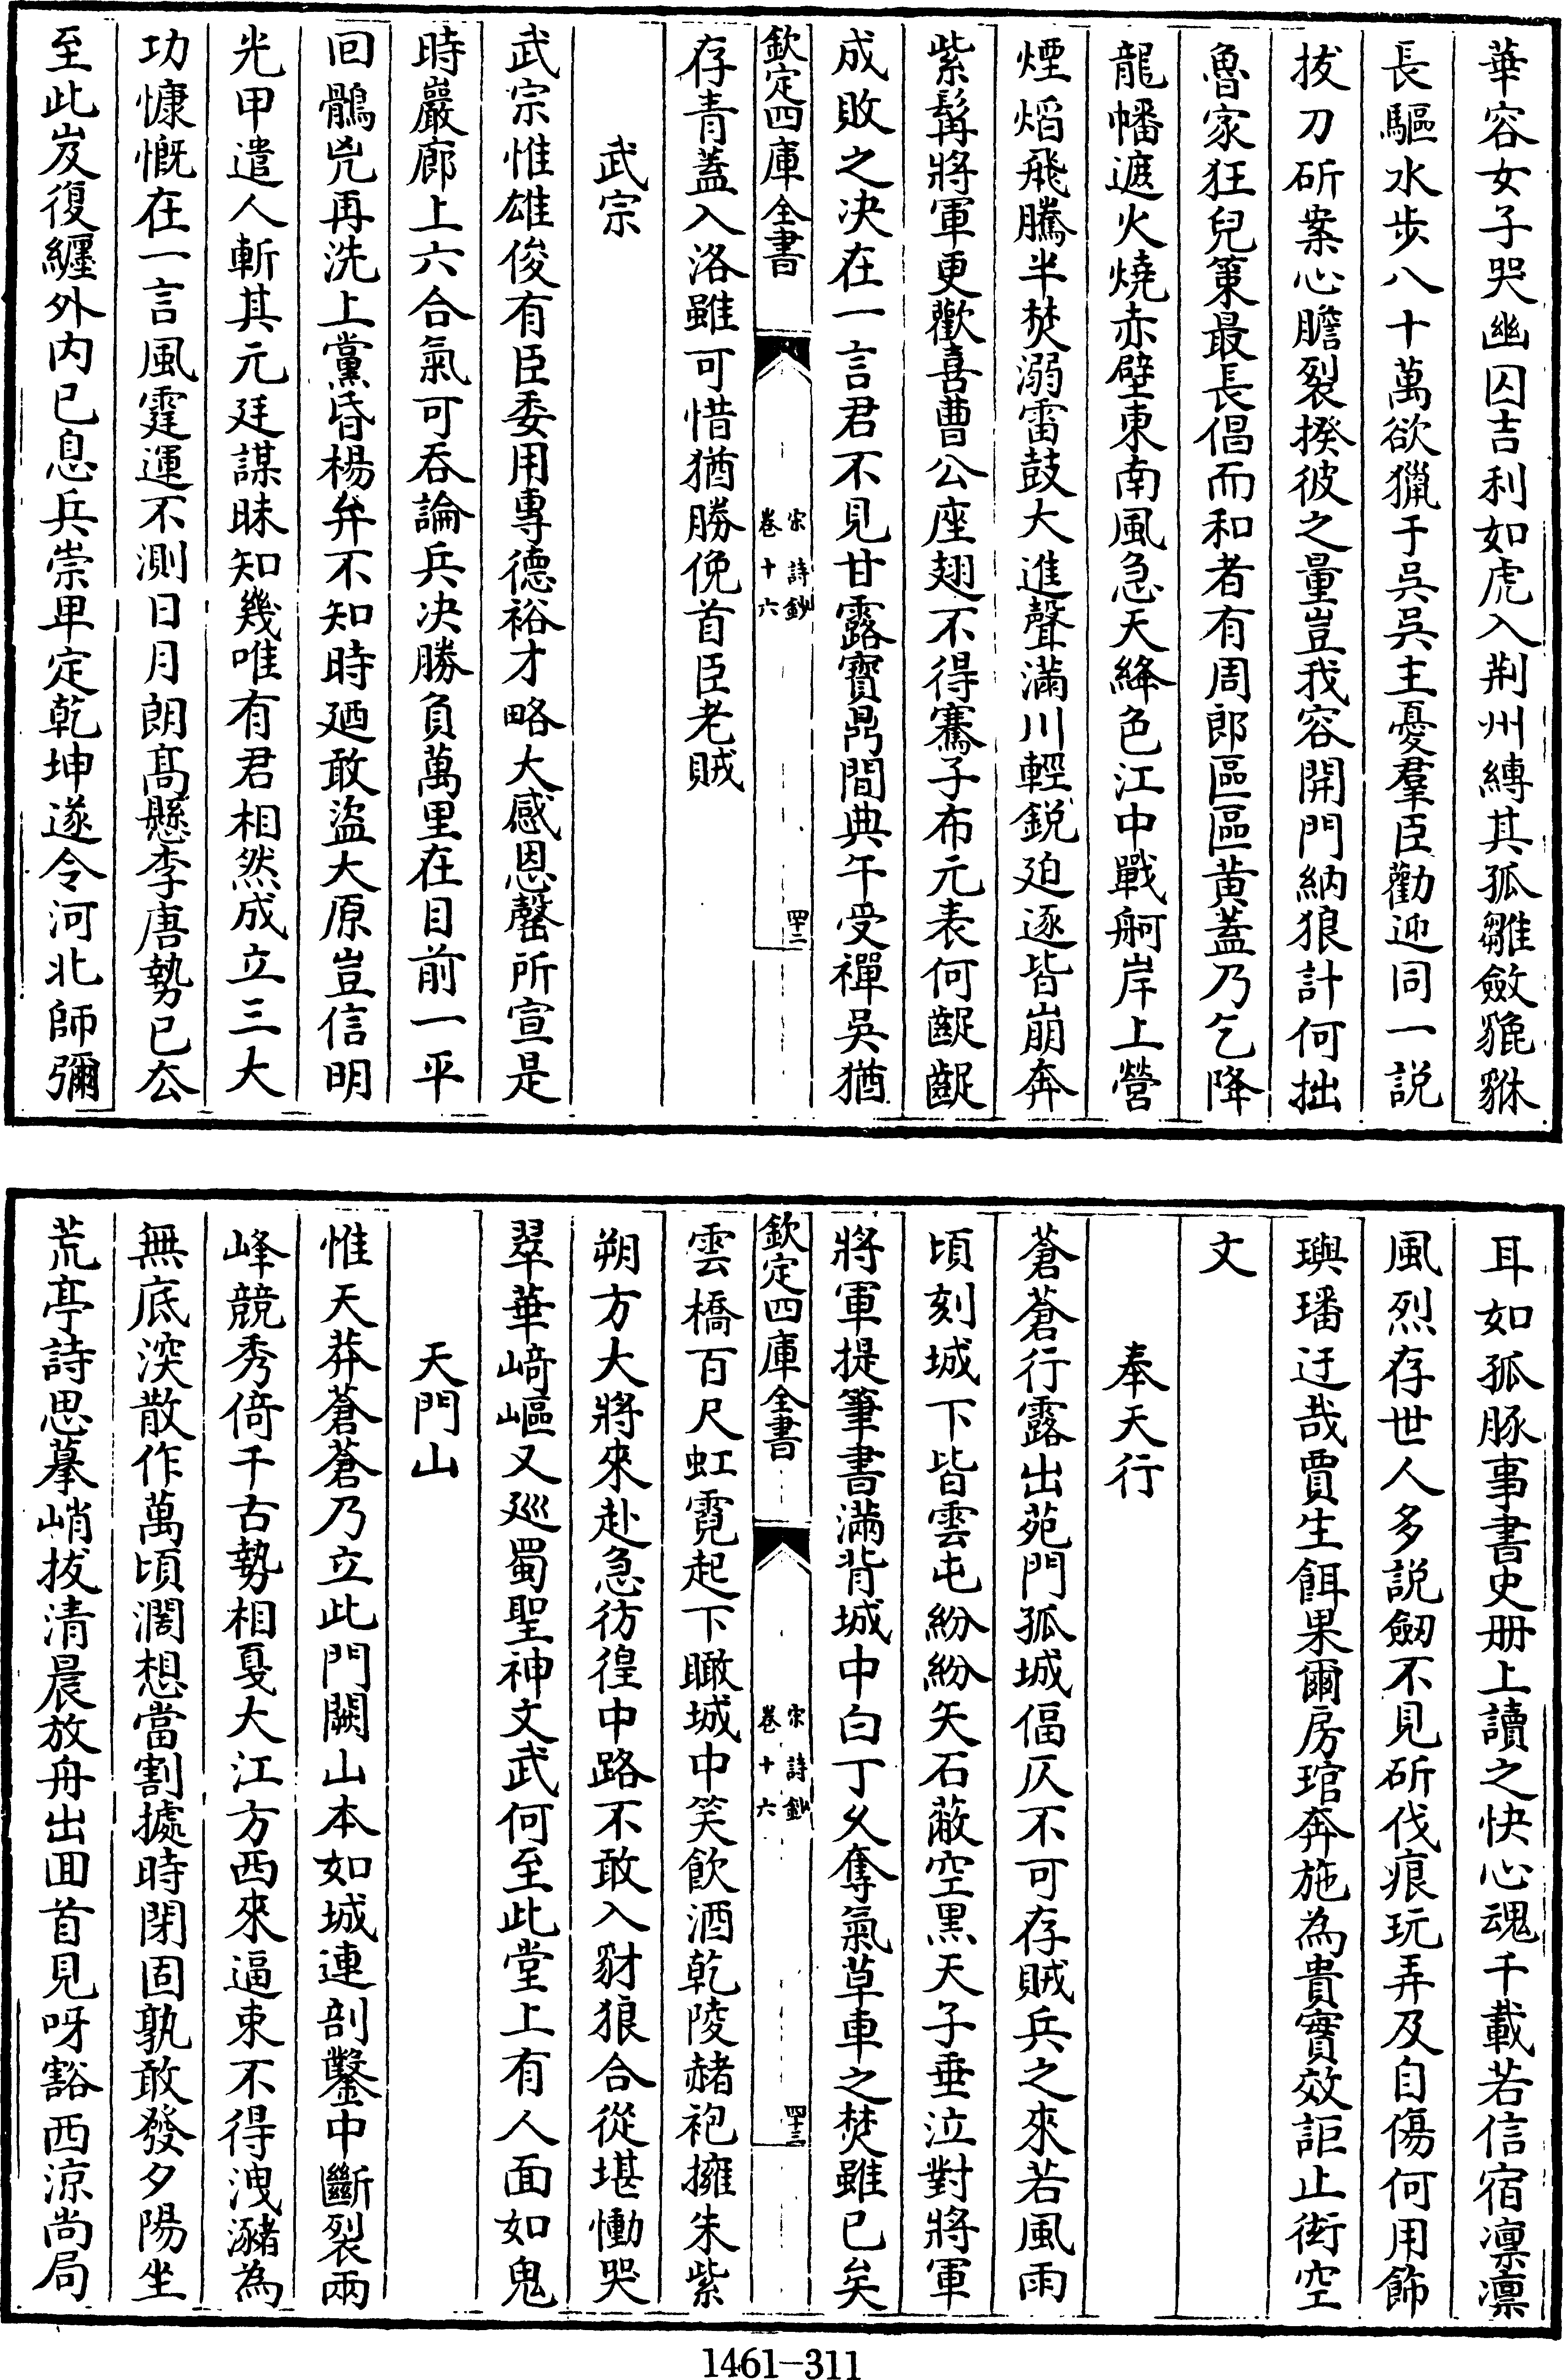 華容女子哭幽囚吉利如虎入荆州縛其孤雛斂貔貅
長驅水步八十萬欲獵于吳吳主憂羣臣勸迎同一説
拔刀斫案心膽裂揆彼之量豈我容開門納狼計何拙
魯家狂兒策最長倡而和者有周郎區區黄蓋乃乞降
龍幡遮火燒赤壁東南風急天絳色江中戰舸岸上營
煙熖飛騰半焚溺雷鼓大進聲滿川輕鋭廹逐皆崩奔
紫髯將軍更歡喜曹公座翅不得騫子布元表何齪齪
成敗之决在一言君不見甘露寳鼎間典午受禪吳猶
欽定四庫全書
宋詩鈔
卷十六
四十二
存青蓋入洛雖可惜猶勝俛首臣老賊
武宗
武宗惟雄俊有臣委用專德裕才略大感恩罄所宣是
時嚴廊上六合氣可吞論兵决勝負萬里在目前一平
回鶻兇再洗上黨昏楊弁不知時廼敢盜大原豈信明
光甲遣人斬其元廷謀昧知幾唯有君相然成立三大
功慷慨在一言風霆運不測日月朗髙懸李唐勢已厺
至此岌復纏外内已息兵崇卑定乾坤遂令河北師彌
耳如孤豚事書史册上讀之快心魂千載若信宿凛凛
風烈存世人多説劒不見斫伐痕玩弄及自傷何用飾
璵璠迂哉賈生餌果爾房琯奔施為貴實效詎止衒空
文
奉天行
蒼蒼行露出苑門孤城偪仄不可存賊兵之來若風雨
頃刻城下皆雲屯紛紛矢石蔽空黒天子垂泣對將軍
將軍提筆書滿背城中白丁乆奪氣草車之焚雖已矣
欽定四庫全書
宋詩鈔
卷十六
四十三
雲橋百尺虹霓起下瞰城中笑飲酒乾陵赭袍擁朱紫
朔方大將來赴急彷徨中路不敢入豺狼合從堪慟哭
翠華﨑嶇又廵蜀聖神文武何至此堂上有人面如鬼
天門山
惟天莽蒼蒼乃立此門闕山本如城連剖鑿中斷裂兩
峰競秀倚千古勢相戛大江方西來逼束不得洩瀦為
無底湥散作萬頃濶想當割據時閉固孰敢發夕陽坐
荒亭詩思摹峭拔清晨放舟出囬首見呀豁西凉尚局
1461-311